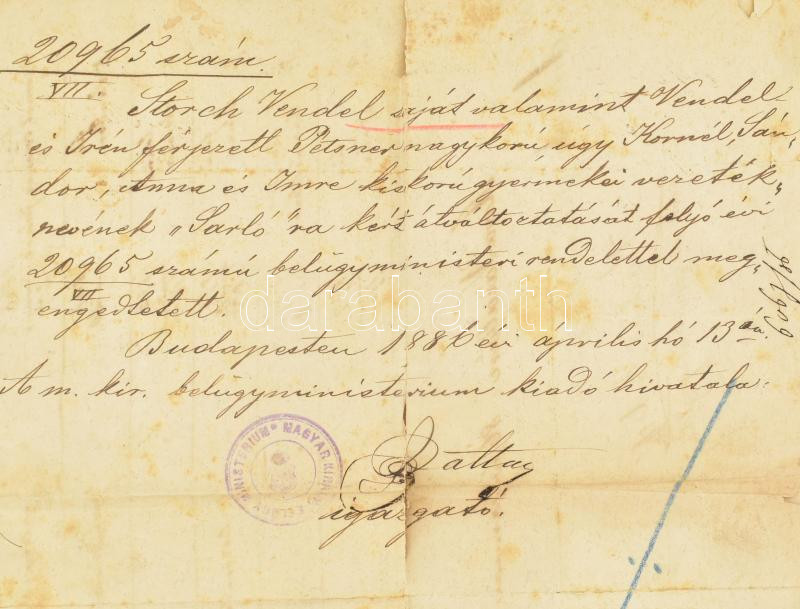 20965 szám.
VII.
Storch Vendel saját valamint Vendel-
és Irén férjezett Petsner nagykorú, úgy Kornél, Sán-
dor, Anna és Imre kiskorú gyermekei vezeték-
nevének „Sarló"ra kért átváltoztatását folyó évi
20965 számú belügyministeri rendelettel meg-
VII
engedtetett.
Budapesten 1886 évi április hó 13án.
A m. kir. belügyministerium kiadó hivatala:
igazgató.
MAGYAR KIR. BELÜGYMINISTERIUM
darabanth